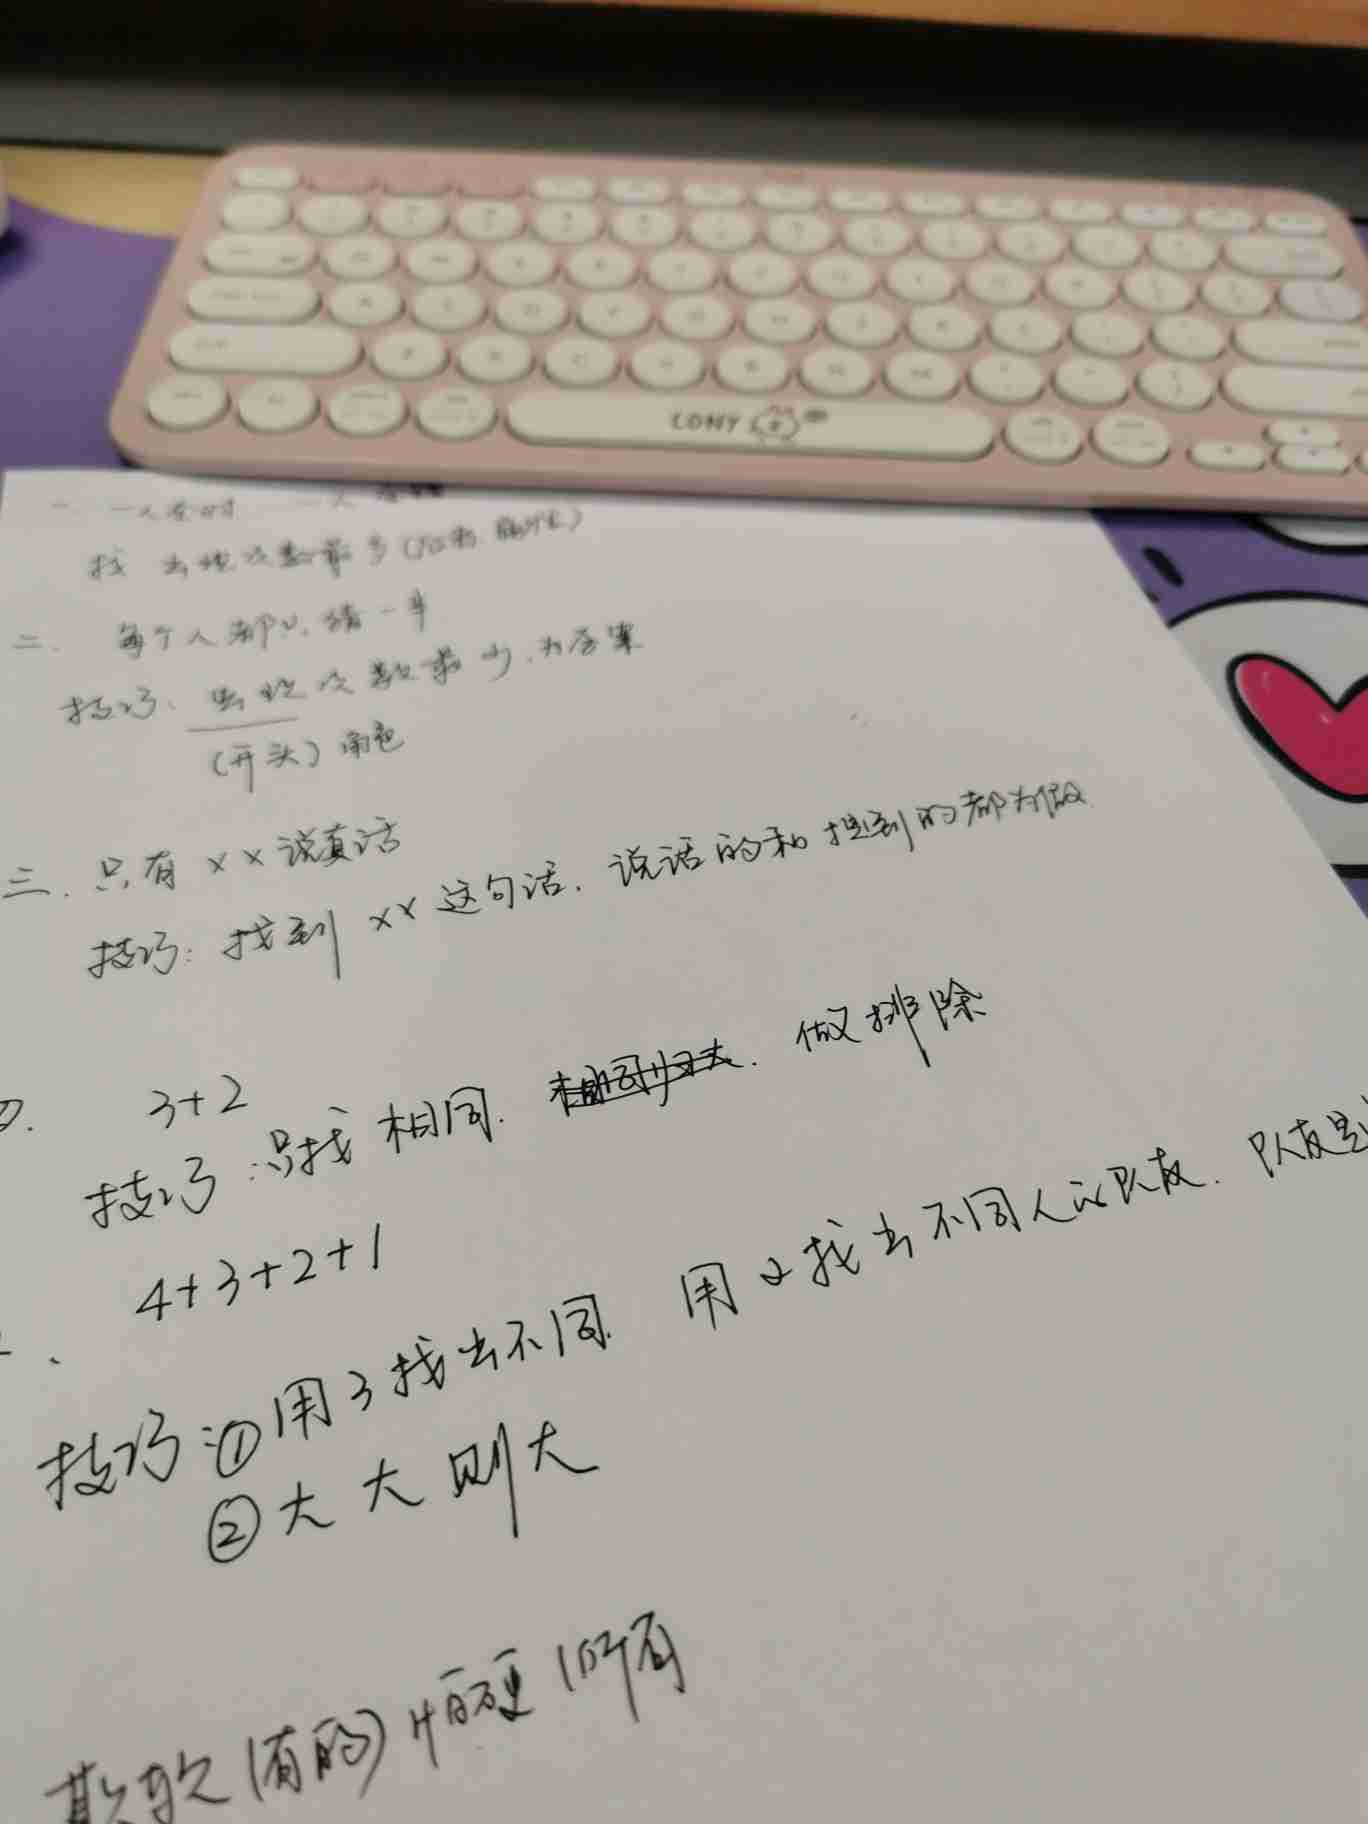 CONY
一. 一人全对 一人全错
找 出现次数最多
二. 每个人都只猜一半
技巧. 出现次数最少.为答案
(开头) 角色
三. 只有 ×× 说真话
技巧: 找到 ×× 这句话. 说话的和提到的都为做
3+2
技巧:只找相同. 做排除
4+3+2+1
技巧:①用3找出不同. 用2找出不同人的队友. 队友是
②大大则大
欺软(有的)怕硬(所有